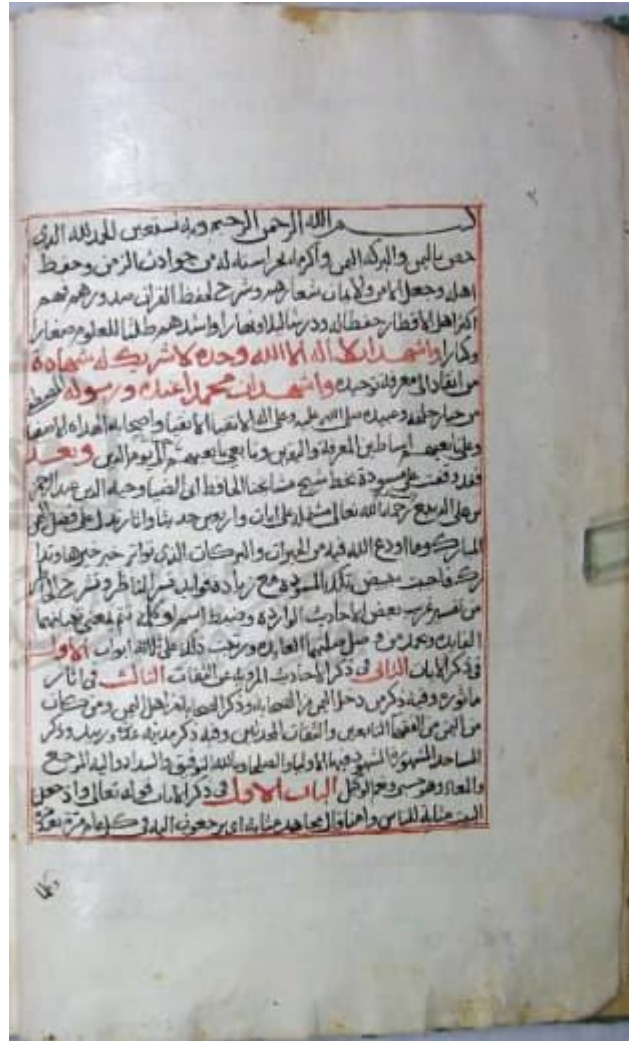 بسم الله الرحمن الرحيم وبه نستعين الحمد لله الذي
خص باليمن والبركة اليمن وأكرمه بحراسته له من حوادث الزمن وحفظ
اهله وجعل الامن والايمان شعارهم وشرح لحفظ القران صدورهم فهم
اكثر اهل الاقطار حفظا له ودرسا ليلا ونهارا واشدهم طلبا للعلوم صغارا
وكبارا واشهد ان لا اله الا الله وحده لا شريك له شهادة
من انقاد الى معرفة توحيده واشهد ان محمدا عبده ورسوله المصطفى
من خيار خلقه وعبيده صلى الله عليه وعلى اله الاتقيا الانقيا واصحابه الهداه الاصفيا
وعلى تابعيهم اساطين المعرفة واليقين وتابعي تابعيهم الى يوم الدين وبعد
فقد وقفت على مسودة بخط شيخ مشايخنا الحافظ ابي الضيا وجيه الدين عبد الرحمن
بن علي الديبع رحمه الله تعالى مشتملة على ايات واربعين حديثا واثار تدل على فضل اليمن
المبارك وما اودع الله فيه من الخيرات والبركات الذي تواتر خبر خيرها وتدا
رك فاحببت تبييض تلك المسوده مع زيادة فوايد تسر الناظر وتشرح الخاطر
من تفسير غريب بعض الاحاديث الوارده وضبط اسم او كلمه تتم لمعنى
الفايده ويحمد من وصل صلتها العايده ورتبت ذلك على ثلاثة ابواب الاول
في ذكر الايات الثاني في ذكر الاحاديث المرويه عن الثقات الثالث في اثار
ماثوره وفيه ذكر من دخل اليمن من الصحابه وذكر الصحابه من اهل اليمن ومن كان
من اليمن من الفقها التابعين والثقات المحدثين وفيه ذكر مدينة وزبيد وذكر
المساجد المشهورة المشهود فيها الاوليا والصلحا وبالله التوفيق والسداد واليه المرجع
والمعاد وهو حسبي ونعم الوكيل الباب الاول في ذكر الايات قوله تعالى واذ جعلنا
البيت مثابة للناس وامنا قال مجاهد مثابة اي يرجعون اليه في كل عام مرة بعد